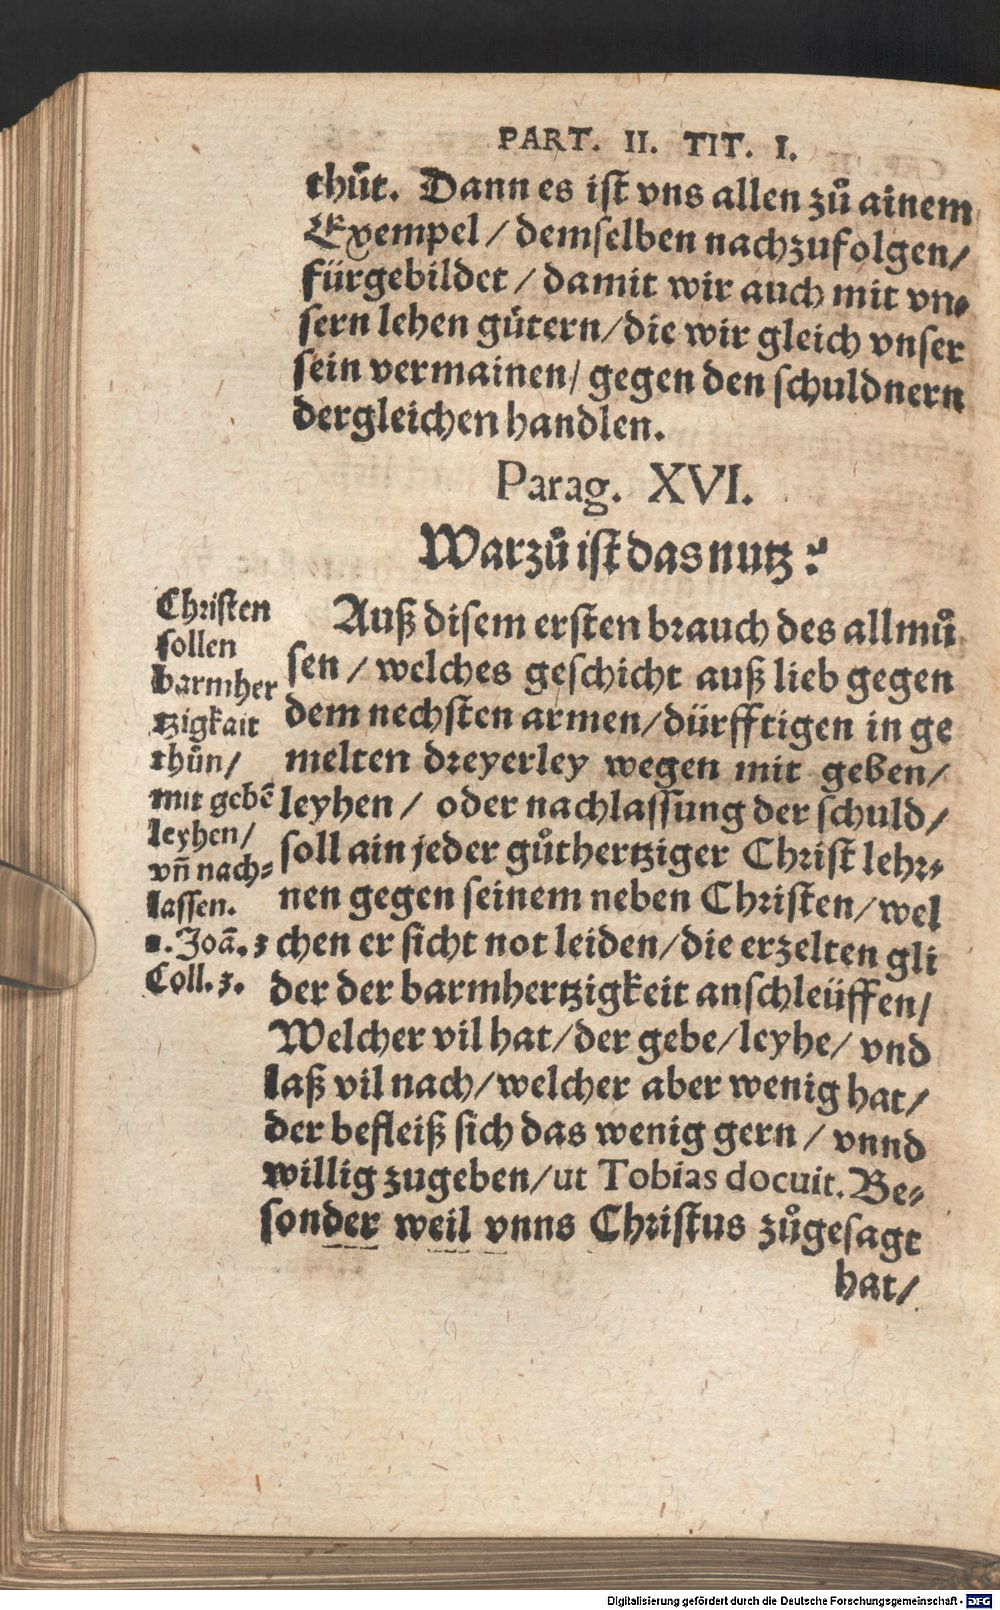 PART. II. TIT. I.
thůt. Dann es ist vns allen zů ainem
Exempel / demselben nachzufolgen/
fürgebildet / damit wir auch mit vn⸗
sern lehen gütern/die wir gleich vnser
sein vermainen/ gegen den schuldnern
dergleichen handlen.
Parag. XVI.
Warzů ist das nutz?
Auß disem ersten brauch des allmů
sen / welches geschicht auß lieb gegen
dem nechsten armen/dürfftigen in ge
melten dreyerley wegen mit geben/
leyhen / oder nachlassung der schuld/
soll ain jeder gůthertziger Christ lehr⸗
nen gegen seinem neben Christen/wel
chen er sicht not leiden/die erzelten gli
der der barmhertzigkeit anschleüffen/
Welcher vil hat/der gebe/leyhe/ vnd
laß vil nach/welcher aber wenig hat/
der befleiß sich das wenig gern / vnnd
willig zugeben/ut Tobias docuit. Be⸗
sonder weil vnns Christus zůgesagt
hat/
Christen
sollen
barmher
tzigkait
thůn/
mit gebē
leyhen/
vñ nach⸗
lassen.
1. Joā. 3
Coll. 3.
Digitalisierung gefördert durch die Deutsche Forschungsgemeinschaft - DFG